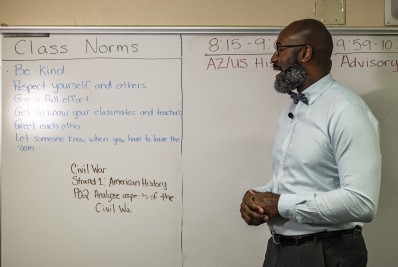 Class Norms
Be Kind
Respect yourself and others
Give full effort
Get to know your classmates and teachers
Greet each other
Let someone know when you have to leave the
room
Civil War
Strand 1: American History
PO2 Analyze aspects of the
Civil War
8:15 - 9:
9:59-10
AZ/US His
Advisory